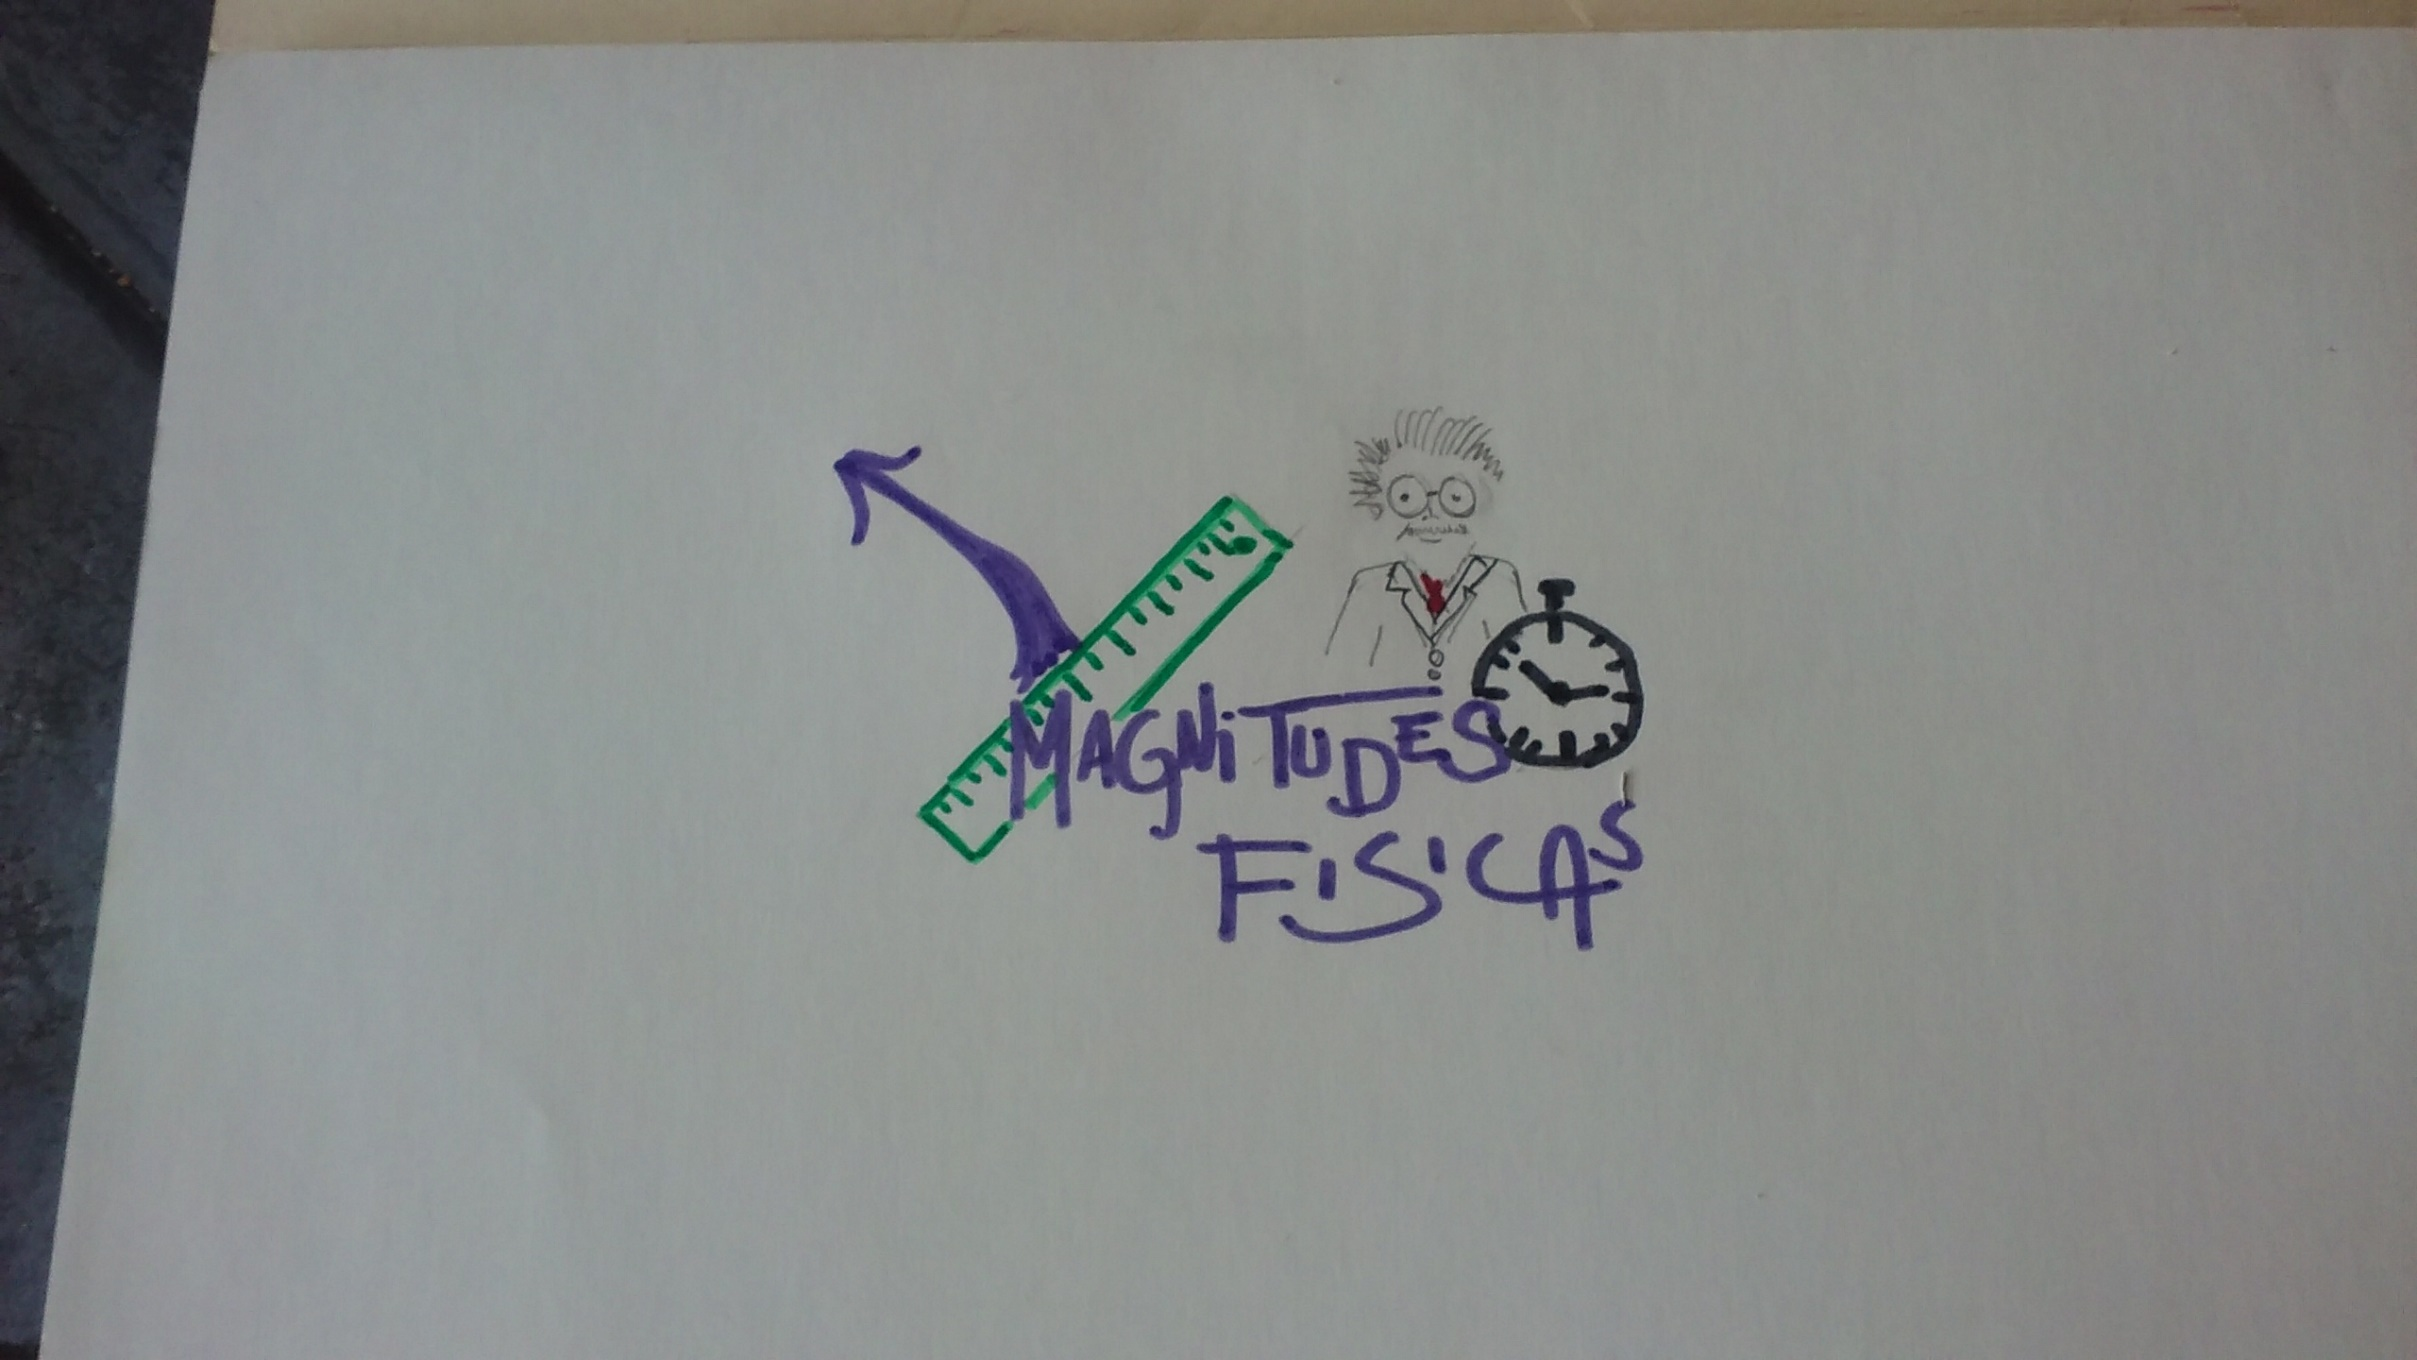 MAGNiTUDES
FiSiCAS